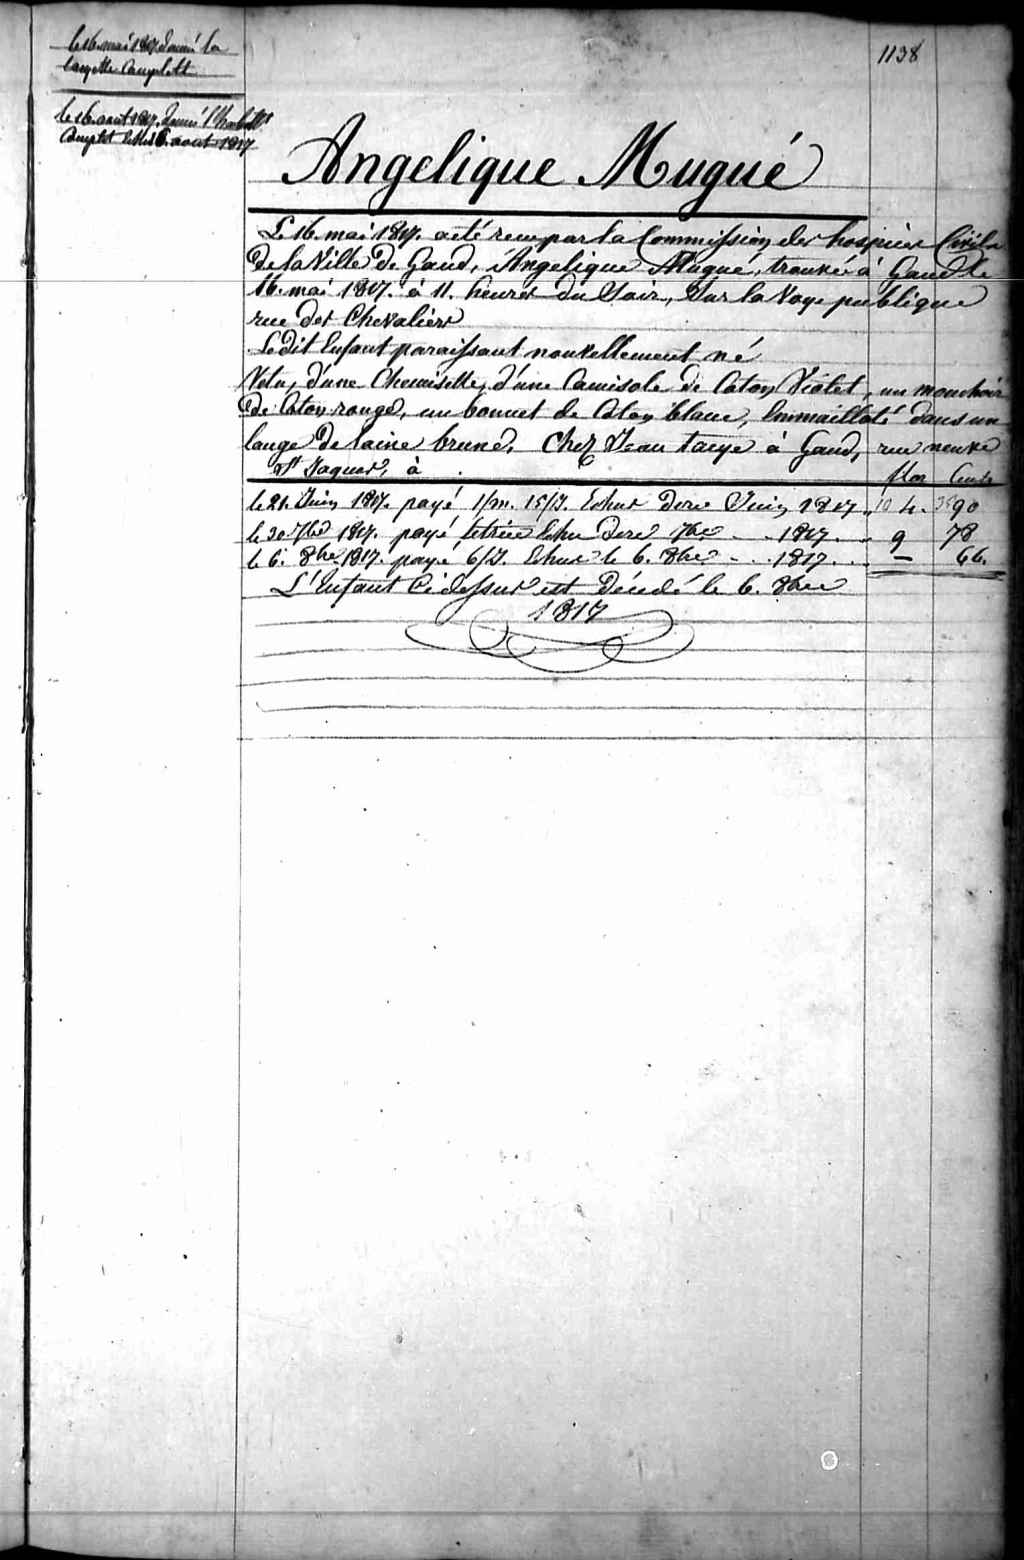 1138
le 16. mai 1817. donné la
layette Complett
le 16. aout 1817. donné l'habillt
Complet 6. aout 1817
Angelique Mugué
Le 16. mai 1817. a été reçu par la Commission des hospices Civils
de la Ville de Gand, Angelique Mugué, trouvée à Gand le
16. mai 1817. à 11. heures du Soir, Sur la Voye publique
rue des Chevaliers
Ledit Enfant paraissant nouvellement né
Vetu, d'une Chemisette, d'une Camisole de Coton Violet, un mouchoir
de Coton rouge, un bonnet de Coton blanc, Emmailloté dans un
lange de laine brune, Chez Jean à Gand, rue neuve
St Jaques, à
flor Cents
le 21. Juin 1817. payé 1/m. 15/J. Echus dere Juin 1817. 10 4. 35 90
le 30 7bre 1817. payé letrice Echu dere 7bre - - 1817. . . 9 78
le 6. 8bre 1817. payé 6/J. Echus le 6. 8bre - - . 1817. . . — 66.
L'Enfant Cidessus est Décédé le 6. 8bre
1817